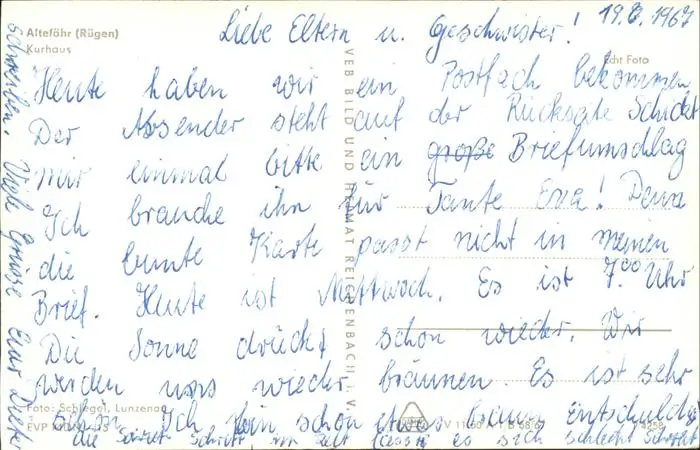 Altefähr (Rügen)
Kurhaus
19.8.1967
Liebe Eltern u. Geschwister!
Echt Foto
Heute haben wir ein Postfach bekommen
Der Absender steht auf der Rückseite Schickt
mir einmal bitte ein große Briefumschlag
Ich brauche ihn für Tante Erna! Denn
die bunte Karte passt nicht in meinen
Brief. Heute ist Mittwoch. Es ist 7.00 Uhr
Die Sonne drückt schon wieder. Wir
werden uns wieder bräunen. Es ist sehr
schön. Ich bin schon etwas braun Entschuldigt
die Schrift im Zelt lässt es sich schlecht
schreiben. Viele Grüsse Euer Dieter
VEB BILD UND HEIMAT REICHENBACH I. V.
Foto: Schlegel, Lunzenau
EVP
V 11 50 A 1 B 68/67
4258